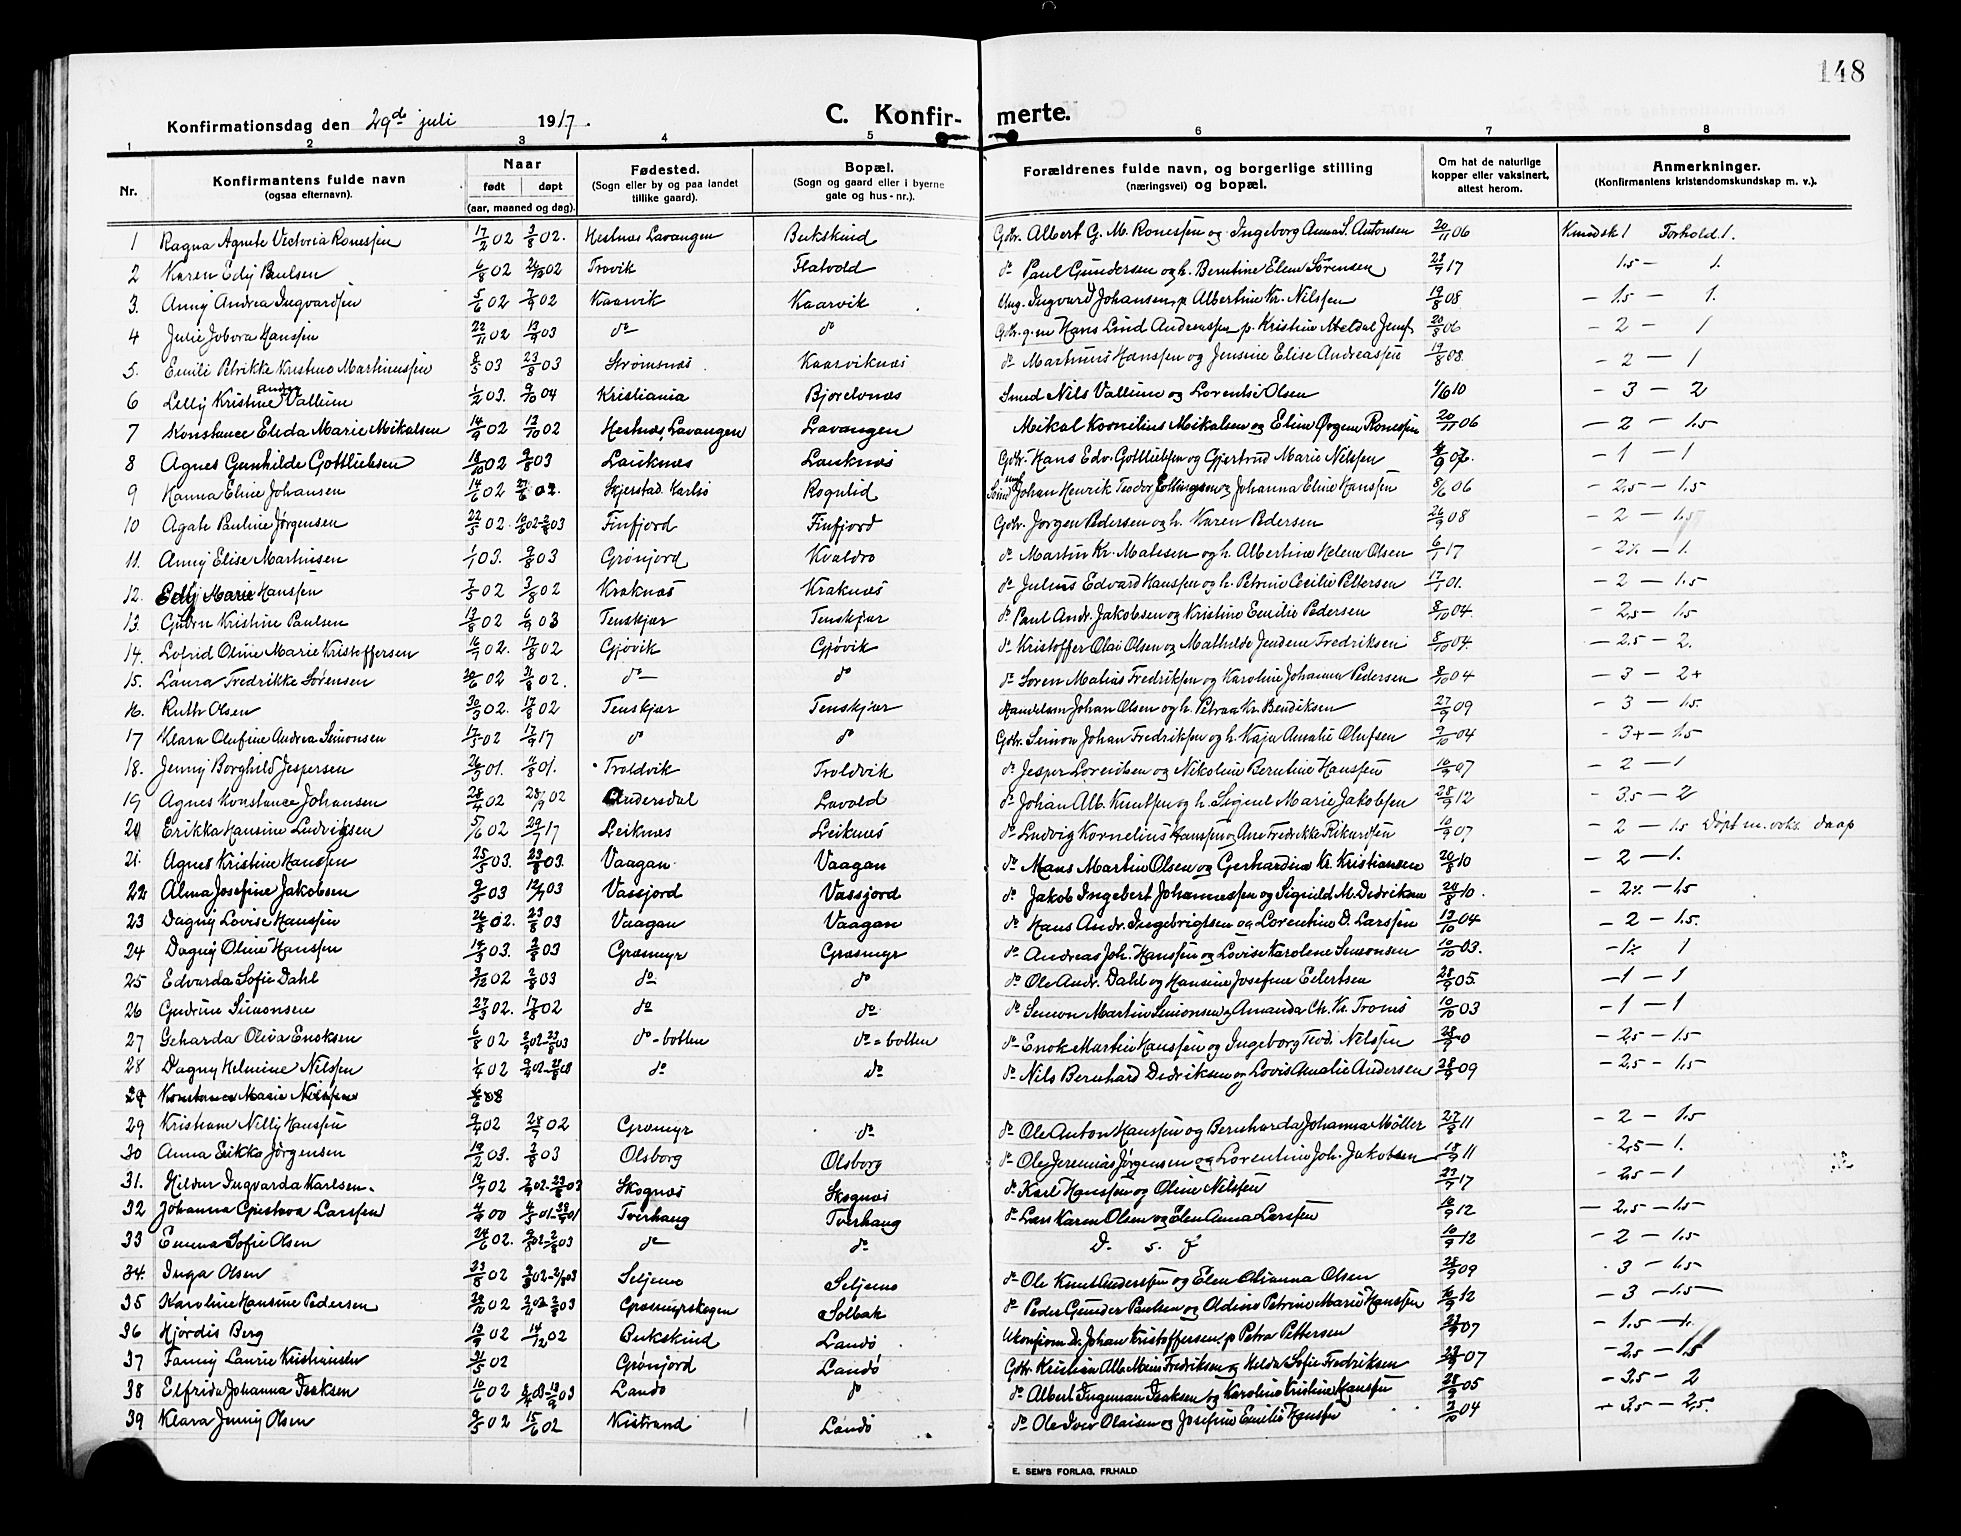 148
Konfirmationsdag den 29d juli 1917.
C. Konfir- merte.
1 2 3 4 5 6 7 8
Nr. Konfirmantens fulde navn (ogsaa efternavn). Naar født døpt (aar, maaned og dag). Fødested. (Sogn eller by og paa landet tillike gaard). Bopæl. (Sogn og gaard eller i byerne gate og hus-nr.). Forældrenes fulde navn, og borgerlige stilling (næringsvei) og bopæl. Om hat de naturlige kopper eller vaksinert, attest herom. Anmerkninger. (Konfirmantens kristendomskundskap m. v.).
1 Ragna Agnete Victoria Ronessen 17/2 02 3/8 02. Hestnæs Lavangen Bukskind Gdbr. Albert G. M. Ronessen og Ingeborg Anna S. Antonsen 20/11 06 Kundsk 1 Forhold 1.
2 Karen Edy Paulsen 6/8 02 Trovik Flatvold do Paul Gundersen og h. Berntine Elene Sørensen 28/9 17 1.5 - 1.
3. Anny Andrea Ingvardsen 5/6 02 7/9 02 Kaarvik Kaarvik Ung. Ingvard Johansen, p. Albertine Kr. Nilssen 19/8 08 - 1.5 - 1.
4 Julie Hanssen 22/11 02 13/9 03 do do Hans Lind Andreassen p. Kristine 20/8 06 - 2 - 1
5. Emilie Petrikke Kristine Martinussen 8/5 03 23/8 03 Strømsnæs. Kaarviknæs do Martinus Hanssen og Jensine Elise Andreassen 19/8 08. - 2 - 1
6 Lelly Kristine Vallum 1/2 03. 9/10 04 Kristiania Bjorelvnæs Smed Nils Vallum og Lorentse Olsen 1/6 10 - 3 - 2
7 Konstance Elida Marie Mikalsen 14/9 02 12/10 02 Hestnæs, Lavangen Lavangen Mikal Kornelius Mikalsen og Eline Ronessen 20/11 06 - 2 - 1.5
8 Agnes Gunhilde Gottliebsen 18/10 02 9/8 03 Lauknæs Lauknæs Gdbr. Hans Edv. Gottliebsen og Gjertrud Marie Nilssen - 1 - 1
9 Hanna Eline Johansen 14/6 02 Skjerstad. Karlsø Rognlid Johan Henrik Teodor og Johanna Eline Hanssen 8/6 06 - 2.5 - 1.5
10 Agate Pauline Jørgensen 22/5 02. Finfjord Finfjord Gdbr. Jørgen Pedersen og h. Karen Pedersen 26/9 08 - 2 - 1.5
11. Anny Elise Martinsen 1/1 03. 9/8 03 Grønjord do Martin Kr. Matesen og h. Albertine Helene Olsen 6/1 17 - 1.
12. Edly Marie Hanssen 7/5 02 3/8 02 Kraknæs Kraknæs do Julius Edvard Hanssen og h. Petrine Cecilie Pettersen 17/1 01. - 2 - 1.5
13. Kristine Paulsen 13/8 02 6/9 03 Tenskjær Tenskjær do Paul Andr. Jakobsen og Kristine Emilie Pedersen 8/10 04. - 2.5 - 1.5
14. Lofrid Oline Marie Kristoffersen 16/1 02. 17/8 02 Gjøvik Gjøvik do Kristoffer Olai Olsen og Mathilde Fredriksen 8/10 04. - 2.5 - 2.
15. Laura Fredrikke Sørensen 20/6 02 31/8 02. do do do Søren Matias Fredriksen og Karoline Johanna Pedersen 8/10 04 - 3 - 2+
16. Ruth Olsen 30/3 02. 17/8 02 Tenskjær Tenskjær Handelsm Johan Olsen og h. Petrea Kr. Bendiksen 27/9 09 - 3 - 1.5.
17 Klara Olufine Andrea Simonsen 17/5 02 17/9 17 do do Gdbr. Simon Johan Fredriksen og h. Kaja Amalie Olufsen 9/10 04 - 3+ - 1.5
18. Jenny Borghild Jespersen 26/3 01. Troldvik Troldvik do Jesper Lorentsen og Nikoline Berntine Hanssen 10/9 07 - 2 - 1
19 Agnes Konstance Johansen 28/4 02 28/9 02 Andersdal Lavold do Johan Alb. Knutsen og h. Signel Marie Jakobsen 28/9 12 - 3.5 - 2
20 Erikka Hansine Ludvigsen 5/6 02 29/7 17 Leiknæs Leiknæs do Ludvig Kornelius Hanssen og Ane Fredrikke Rikardsen 10/9 07. - 2 - 1.5 Døpt m. voks. daap
21. Agnes Kristine Hanssen 25/5 03. 23/8 03. Vaagan Vaagan do Hans Martin Olsen og Gerhardine Kr. Kristiansen 20/8 10 - 2 - 1.
22 Alma Josefine Jakobsen 9/5 03 12/7 03 Vassjord Vassjord do Jakob Ingebert Johannessen og Signild M. Dedriksen 20/8 10. - 1.5
23 Dagny Lovise Hanssen 26/8 02. 23/8 03 Vaagan Vaagan do Hans Andr. Ingebrigtsen og Lorentine D. Larssen 13/10 04 - 2 - 1.5.
24 Dagny Oline Hanssen 14/3 03. 2/8 03 Græsmyr Græsmyr do Andreas Joh. Hanssen og Lovise Karolene Simonsen 10/10 03. 1
25 Edvarda Sofie Dahl 3/12 02 2/8 03 do do do Ole Andr. Dahl og Hansine Josefine Eilertsen 28/9 05. - 1 - 1
26 Gudrun Simonsen 27/3 02. 17/8 02 do do do Simon Martin Simonsen og Amanda Ch. Kr. Tromis 10/10 03 - 1 - 1
27 Geharda Oliva Enoksen 6/8 02 do - botten do - botten do Enok Martin Hanssen og Ingeborg Teod. Nilssen - 2.5 - 1.5
28 Dagny Helmine Nilssen 1/4 02 do do do Nils Bernhard Dedriksen og Lovis Amalie Andersen 28/9 09 - 2.5 - 1.5
29 Konstance Marie Nilssen
29 Kristiane Nilly Hanssen 9/4 02 28/7 02 Græsmyr do do Ole Anton Hanssen og Bernharda Johanna Møller 27/8 11 - 2 - 1.5
30 Anna Erikka Jørgensen 19/2 03. 2/8 03 Olsborg Olsborg do Ole Jeremias Jørgensen og Lorentine Joh. Jakobsen 18/9 11 2.5 - 1.
31. Hildur Ingvarda Karlsen. 19/7 02 Skognæs Skognæs do Karl Hanssen og Oline Nilssen 23/7 17 - 2.5 - 1
32 Johanna Gustava Larssen Tverhaug Tverhaug do Lars Karen Olsen og Elen Anna Larssen 10/9 12 - 2.5 - 1.5
33 Emma Sofie Olsen 24/6 02. do do D. s. f 10/9 12 - 2 - 1.5
34. Inga Olsen 23/8 02 Seljemo Seljemo do Ole Knut Anderssen og Elen Olianna Olsen 28/9 09 3 - 1.5
35 Karoline Hansine Pedersen 29/10 02 Græsmyrskogen Solbak do Peder Gunder Paulsen og Oldine Petrine Marie Hanssen 10/9 12 - 3 - 1.5
36 Hjørdis Berg 13/9 02 14/12 02 Bukskind Landø Johan Kristoffersen, p Petra Pettersen 07 - 1.5 - 1.
37 Fanny Laurie Kristiansen 31/5 02 Grønjord Landø Gdbr. Kristian Alb. Fredriksen og Helda Sofie Fredriksen 07 - 2.5 - 1.5
38 Elfrida Johanna Isaksen 10/6 02 Landø do do Albert Ingeman Isaksen og Karoline Kristine Hanssen 28/9 05 - 3.5 - 2
39 Klara Jenny Olsen 9/5 02 15/6 02 Kistrand Landø do Ole Iver Olaisen og Josefine Emilie Hanssen 3/10 04 - 2.5.
E. SEM'S FORLAG, FR.HALD